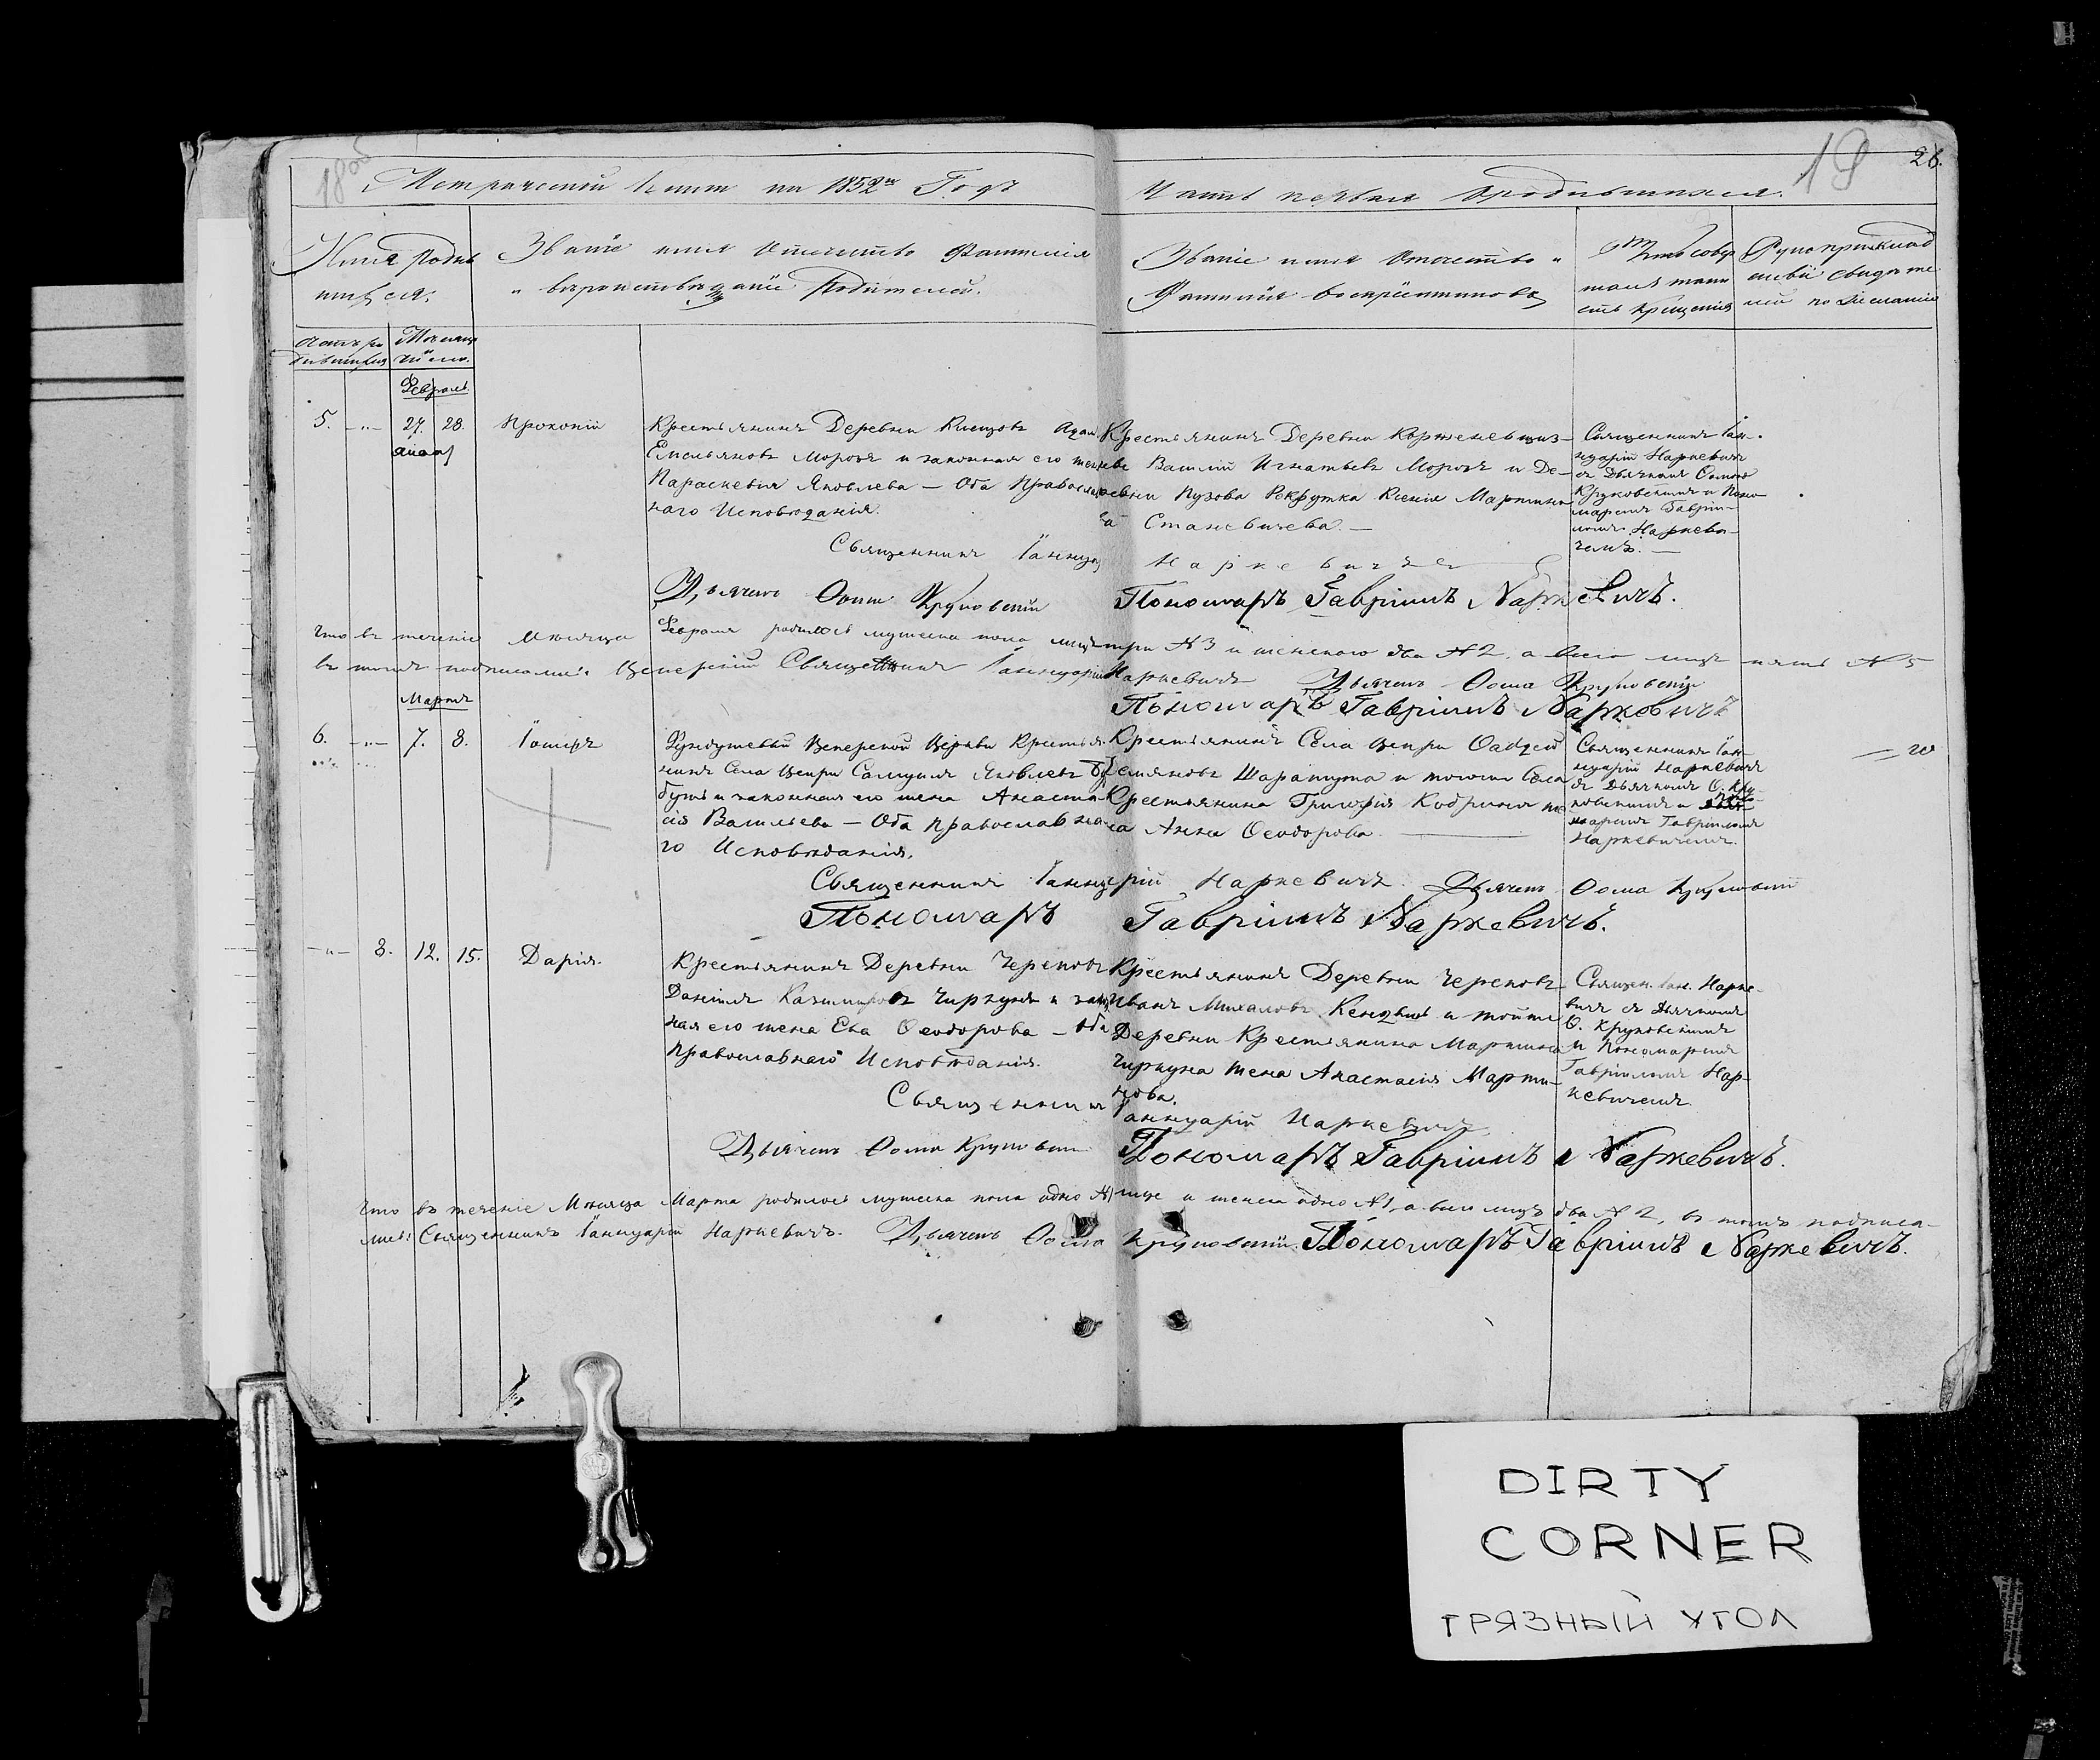 Метрической книги на 1852й Годъ
Часть первая о родившихся.
26.
Имя родив
шихся.
Званіе имя Отчество Фамилія
и вѣроисповѣданіе Родителей.
Званіе имя Отчество и
Фамилія воспріемниковъ
Кто совер
шалъ таин
ство крещенія
Рукоприклад
ство свидѣте
лей по желанію
Февраль
5. -"- 27. 28. Прокопій
Крестьянинъ Деревни Адам
Емельяновъ Морозъ и законная его жена
Параскевія Яковлева — Оба Православ
наго Исповѣданія.
Крестьянинъ Деревни
Василій Игнатьевъ Морозъ и Де-
ревни Пузова Рекрутка Ксенія Мартино
ва Станевичева. —
Священникъ Іан-
нуарій Наркевичъ
съ Дьячкомъ Ѳомою
Круковскимъ и Поно-
маремъ Гаврі-
иломъ Наркеви-
чемъ. —
Священникъ Іаннуа
Наркевичъ
Дьячекъ Ѳома Круковскій
Пономарь Гавріилъ Наркевичъ.
Что въ теченіе Мѣсяца Февраля родилось мужеска пола лицъ три № 3 и женскаго два № 2, а всего лицъ пять № 5
въ томъ подписались: Цеперскій Священникъ Іаннуарій Наркевичъ Дьячекъ Ѳома Круковскій
Пономарь Гавріилъ Наркевичъ
Мартъ
6. -"- 7. 8. Іосифъ
Цеперской Церкви Крестья
нинъ Села Цепры Самуилъ Яковлевъ
и законная его жена Анаста
сія Васильева — Оба православна
го Исповѣданія.
Крестьянинъ Села Цепры Ѳаддей
Демяновъ и тогожъ Села
Крестьянина Григорія Кобриня же
на Анна Ѳеодорова
Священникъ Іан-
нуарій Наркевичъ
съ Дьячкомъ Ѳ. Кру-
ковскимъ и Поно-
маремъ Гавріиломъ
Наркевичемъ.
Священникъ Іаннуарій Наркевичъ. Дьячекъ Ѳома Круковскій
Пономарь Гавріилъ Наркевичъ.
-"- 3. 12. 15. Дарія.
Крестьянинъ Деревни Череповъ
Даніилъ Казимировъ Чиркунъ и закон
ная его жена Ева Ѳеодорова — оба
Православнаго Исповѣданія.
Крестьянинъ Деревни Череповъ
Иванъ Михаловъ и тойже
Деревни Крестьянина Мартина
Чиркуна жена Анастасія Марти-
нова.
Священ. Іан. Нарке-
вичъ съ Дьячкомъ
Ѳ. Круковскимъ
и Пономаремъ
Гавріиломъ Нар-
кевичемъ.
Священникъ Іаннуарій Наркевичъ.
Дьячекъ Ѳома Круковскій
Пономарь Гавріилъ Наркевичъ.
Что въ теченіе Мѣсяца Марта родилось мужеска пола одно №1 лице и женска одно №1, а всего лицъ два № 2, въ томъ подписа-
лись: Священникъ Іаннуарій Наркевичъ. Дьячекъ Ѳома Круковскій. Пономарь Гавріилъ Наркевичъ.
DIRTY
CORNER
ГРЯЗНЫЙ УГОЛ